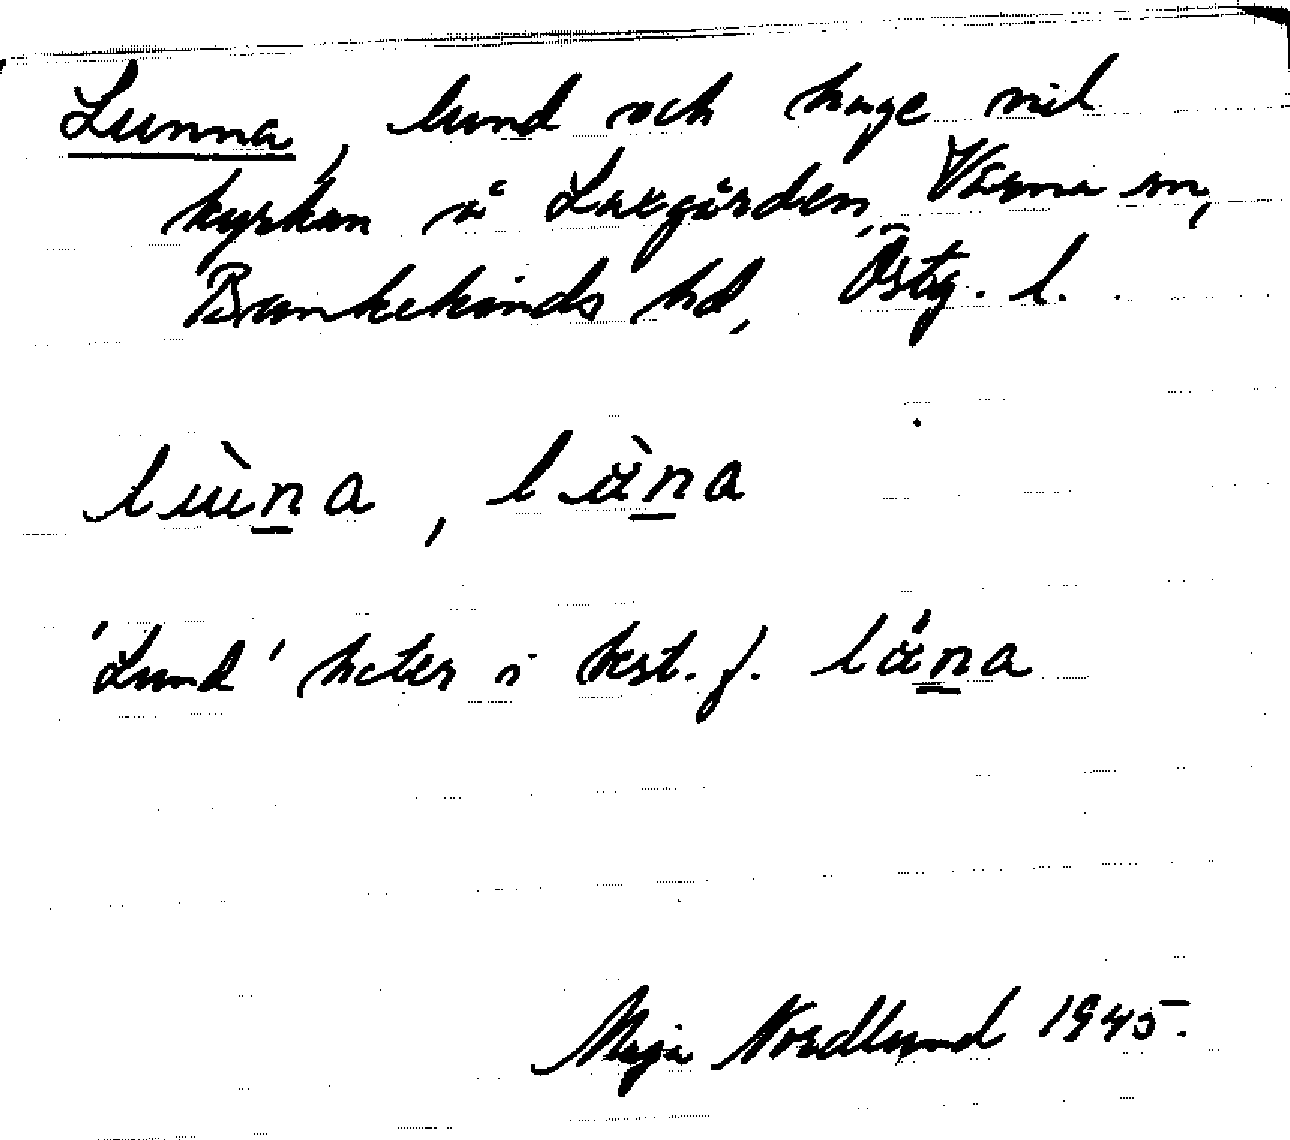 Lunna, lund och hage vid
kyrkan å Laxgården, Värna sn,
Bankekinds hd, Östg. l.
lùṉa, làṉa
'Lund' heter i best. f. láṉa
Maja Nordlund 1945.